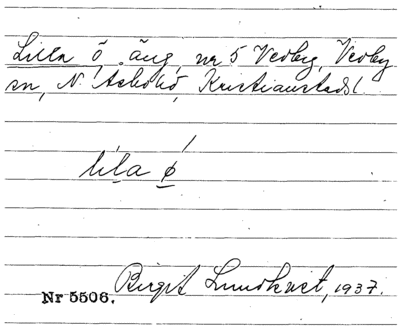 Lilla ö, äng, nr 5 Vedby, Vedby
sn, N. Åsbohd, Kristianstads l.
lila ø
Birgit Lundkvist, 1937.
Nr 5506.